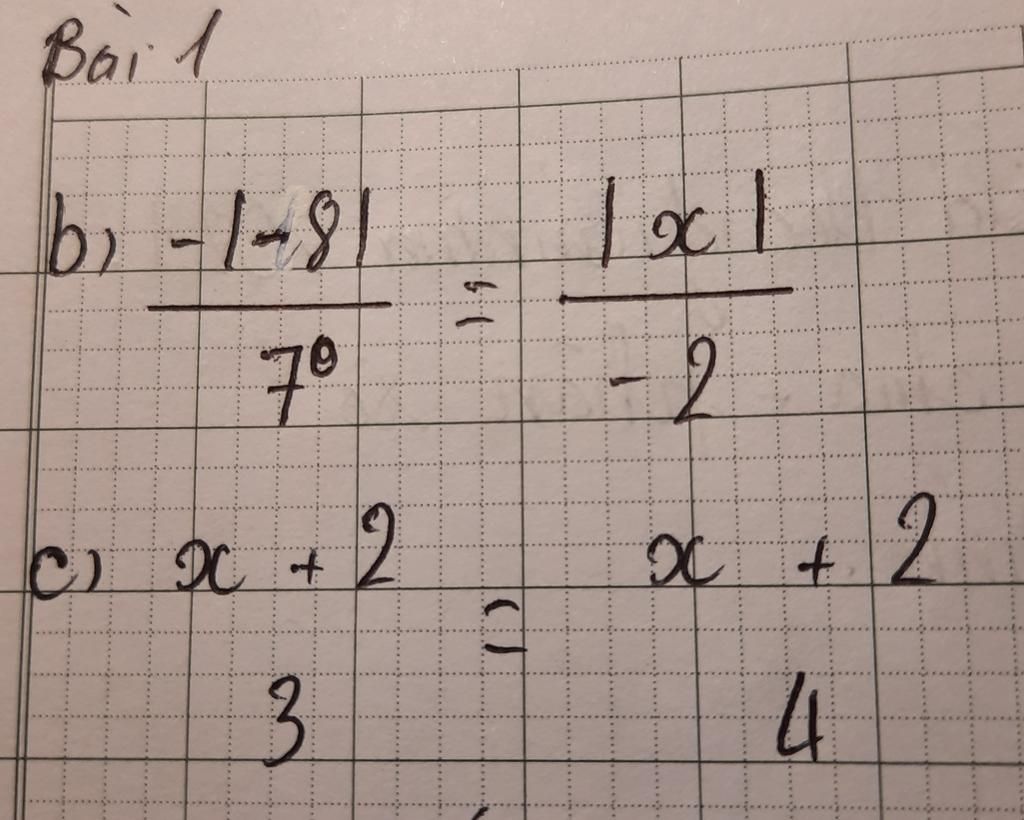 Bài 1
b) -|-8| / 7⁰ = |x| / -2
c) x + 2 = x + 2
3 4